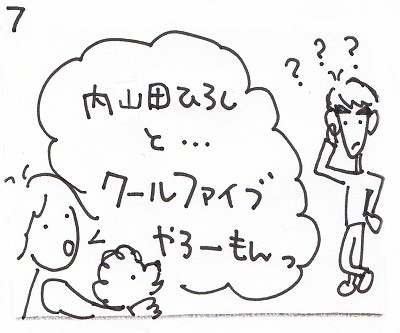 7
? ? ?
内山田ひろし
と…
クールファイブ
やろーもんっ